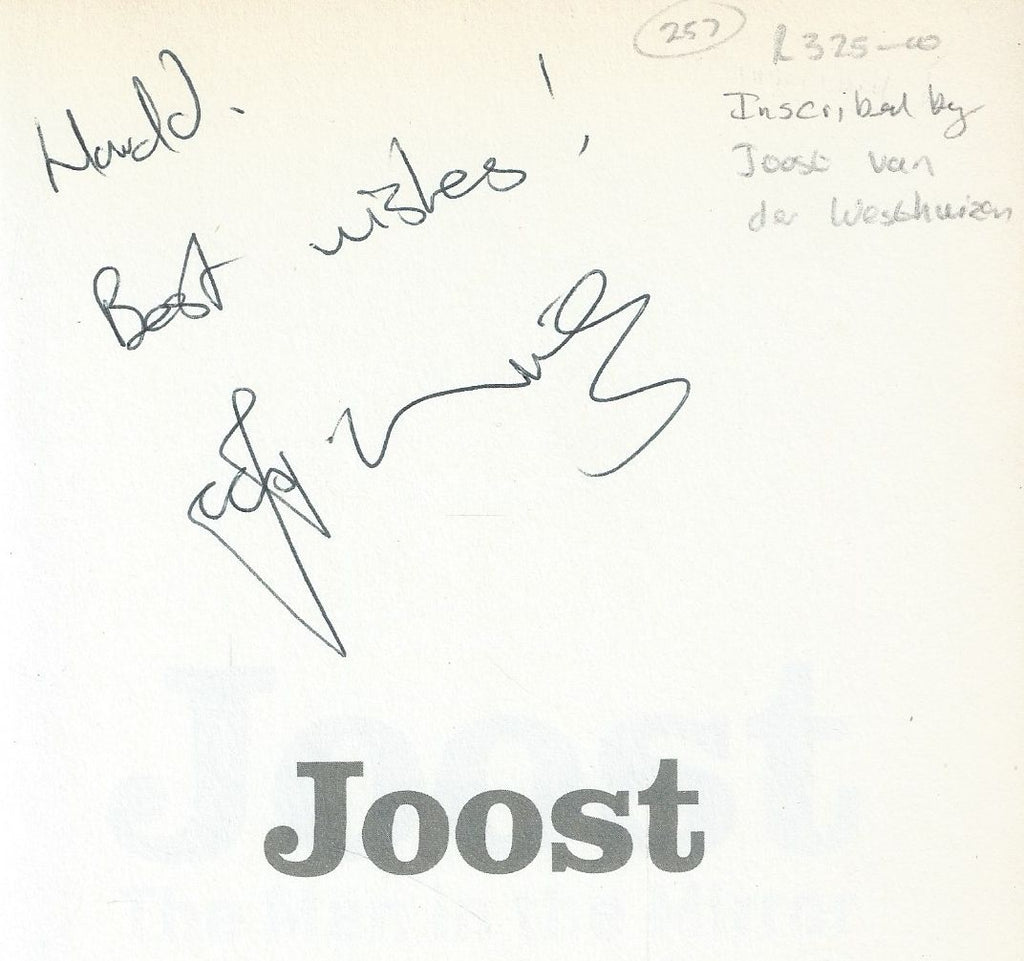 257
R325-00
Inscribed by
Joost van
der Westhuizen
Best wishes!
Joost